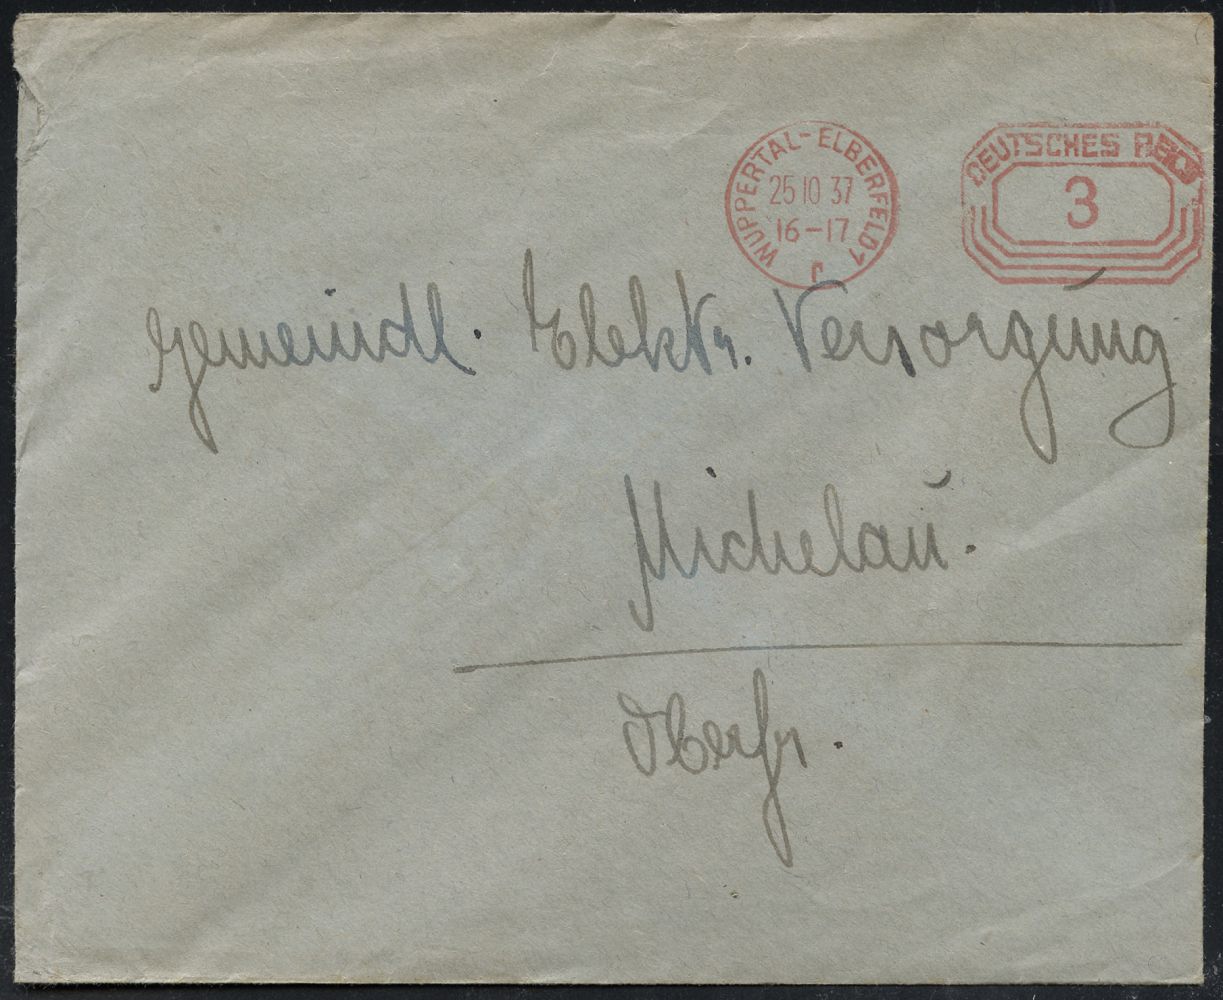 WUPPERTAL-ELBERFELD 1
25 10 37
16-17
r
DEUTSCHES REICH
3
Gemeindl. Elektr. Versorgung
Michelau.
Oberfr.